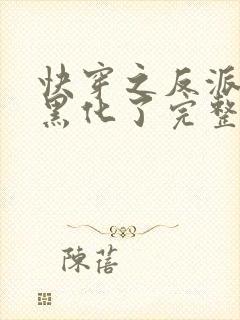 快穿之反派
黑化了完整
陳蓓